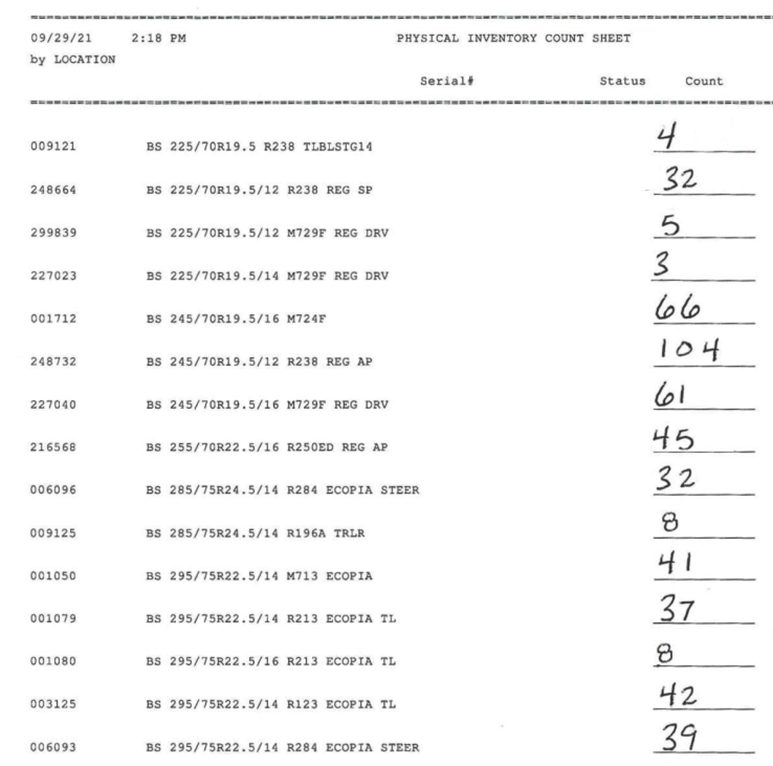 09/29/21 2:18 PM PHYSICAL INVENTORY COUNT SHEET
by LOCATION
Serial# Status Count
009121 BS 225/70R19.5 R238 TLBLSTG14 4
248664 BS 225/70R19.5/12 R238 REG SP 32
299839 BS 225/70R19.5/12 M729F REG DRV 5
227023 BS 225/70R19.5/14 M729F REG DRV 3
001712 BS 245/70R19.5/16 M724F 66
248732 BS 245/70R19.5/12 R238 REG AP 104
227040 BS 245/70R19.5/16 M729F REG DRV 61
216568 BS 255/70R22.5/16 R250ED REG AP 45
006096 BS 285/75R24.5/14 R284 ECOPIA STEER 32
009125 BS 285/75R24.5/14 R196A TRLR 8
001050 BS 295/75R22.5/14 M713 ECOPIA 41
001079 BS 295/75R22.5/14 R213 ECOPIA TL 37
001080 BS 295/75R22.5/16 R213 ECOPIA TL 8
003125 BS 295/75R22.5/14 R123 ECOPIA TL 42
006093 BS 295/75R22.5/14 R284 ECOPIA STEER 39